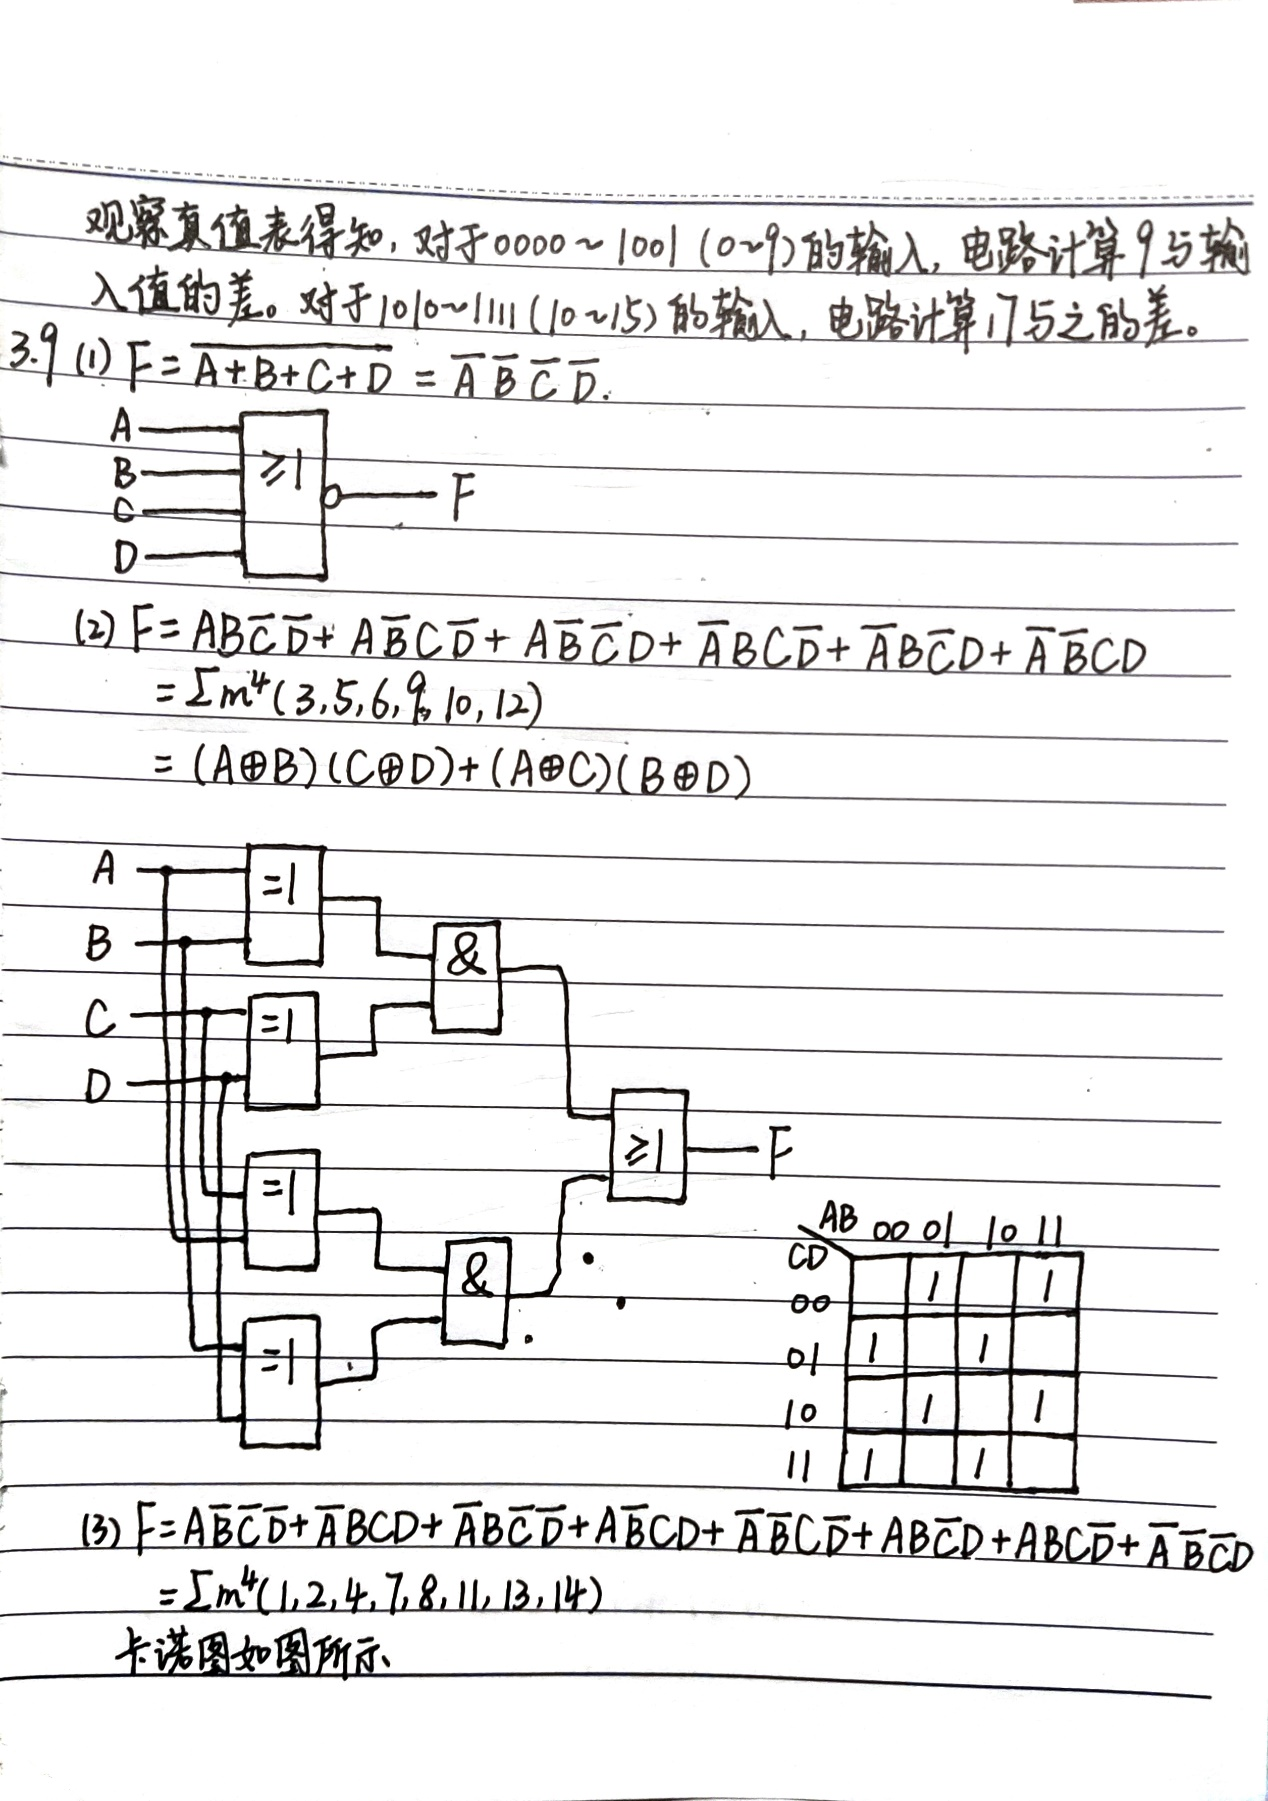 观察真值表得知，对于0000~1001(0~9)的输入，电路计算9与输
入值的差。对于1010~1111(10~15)的输入，电路计算17与之的差。
3.9 (1) F = \overline{A+B+C+D} = \overline{A} \overline{B} \overline{C} \overline{D}.
A
B
≥1
F
C
D
(2) F = AB\overline{C}\overline{D} + A\overline{B}C\overline{D} + A\overline{B}\overline{C}D + \overline{A}BC\overline{D} + \overline{A}B\overline{C}D + \overline{A}\overline{B}CD
= Σm⁴(3,5,6,9,10,12)
= (A⊕B)(C⊕D)+(A⊕C)(B⊕D)
A
=1
B
&
C
=1
D
≥1
F
=1
&
=1
AB 00 01 10 11
CD
00 1 1
01 1 1
10 1 1
11 1 1
(3) F = A\overline{B}\overline{C}\overline{D} + \overline{A}BCD + \overline{A}B\overline{C}\overline{D} + A\overline{B}CD + \overline{A}\overline{B}C\overline{D} + AB\overline{C}D + ABC\overline{D} + \overline{A}\overline{B}\overline{C}D
= Σm⁴(1,2,4,7,8,11,13,14)
卡诺图如图所示